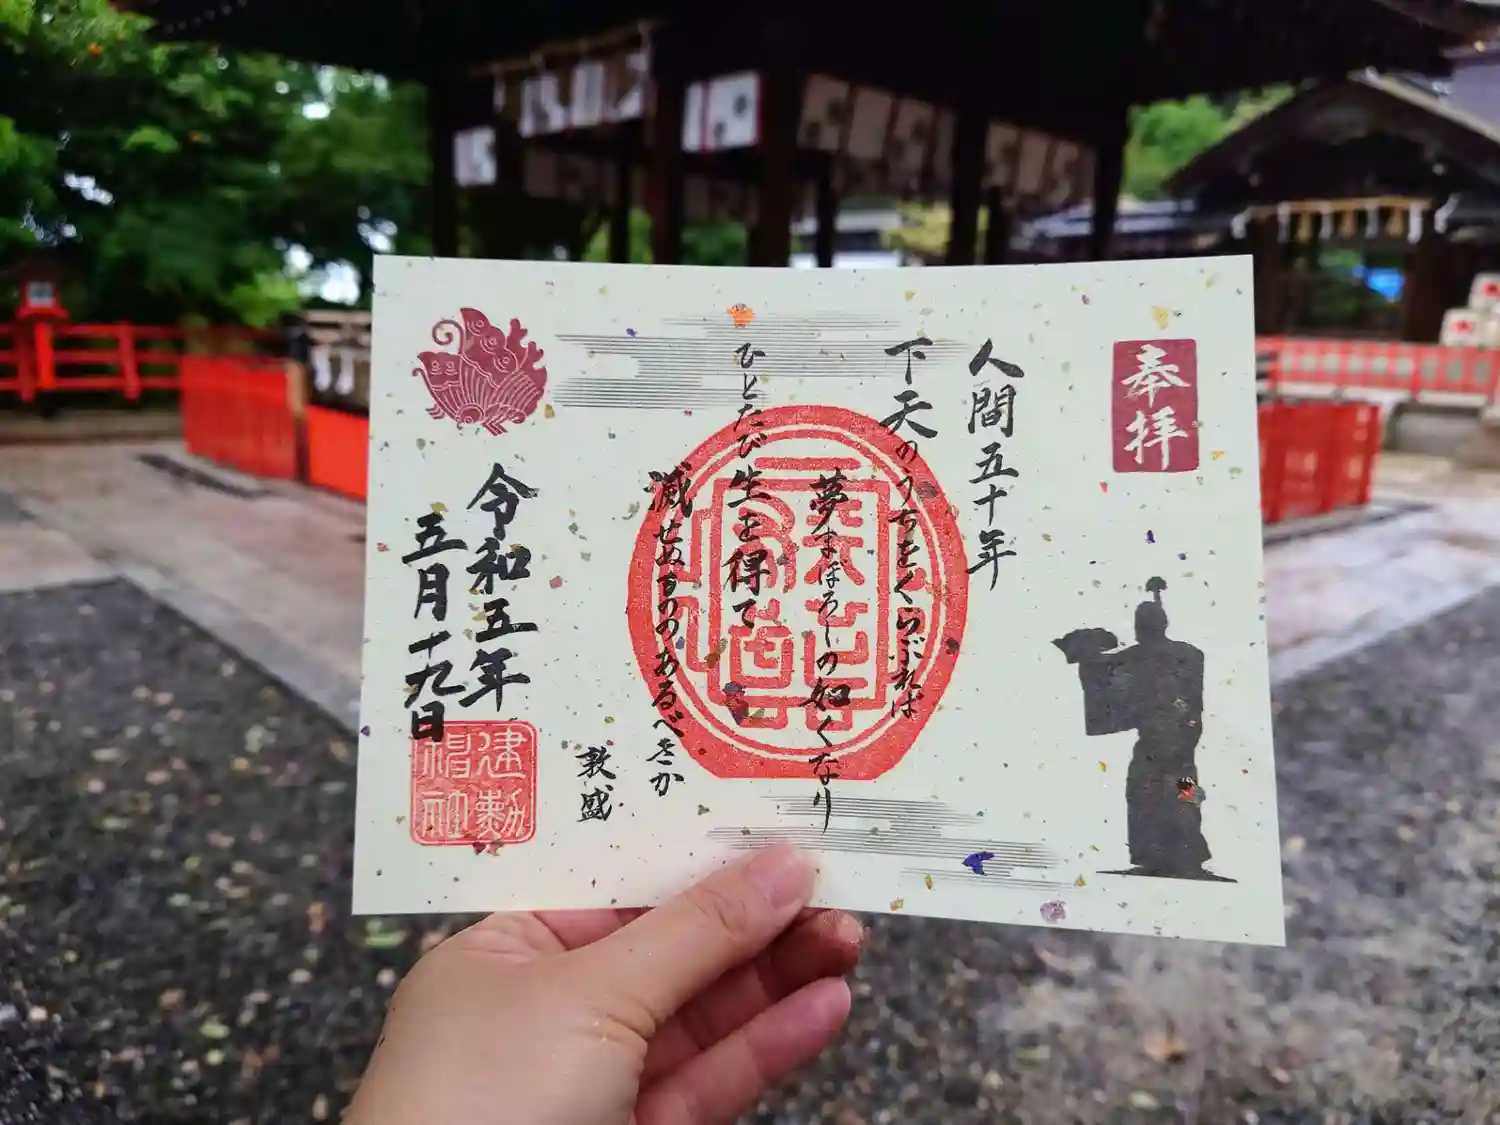 奉拝
人間五十年
下天のうちをくらぶれば
夢まぼろしの如くなり
ひとたび生を得て
滅せぬもののあるべきか
敦盛
天下布武
令和五年
五月十九日
建勲神社